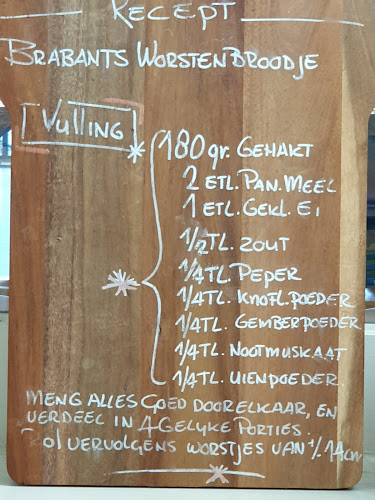 RECEPT
BRABANTS WORSTENBROODJE
VULLING
180 gr. GEHAKT
2 ETL. PAN. MEEL
1 ETL. GEKL. Ei
1/2 TL. ZOUT
1/4 TL. PEPER
1/4 TL. KNOFL. POEDER
1/4 TL. GEMBERPOEDER
1/4 TL. NOOTMUSKAAT
1/4 TL. UIENPOEDER.
MENG ALLES GOED DOORELKAAR, EN
VERDEEL IN 4 GELYKE PORTIES.
VERVOLGENS WORSTJES VAN 14CM